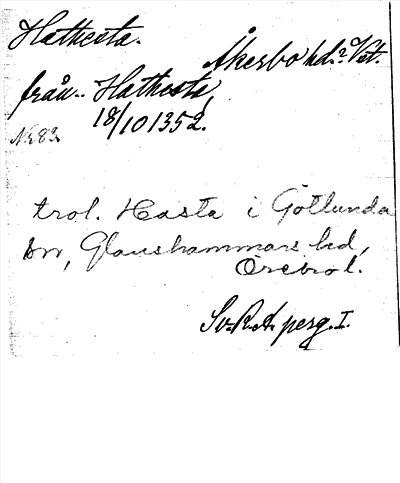 Hathesta.
Åkerbo hd.? Vst.
från Hathesta
18/10 1352.
Nr 83
trol. Hasta i Götlunda
sn, Glanshammars hd,
Örebro l.
Sv. R. A. perg. I.